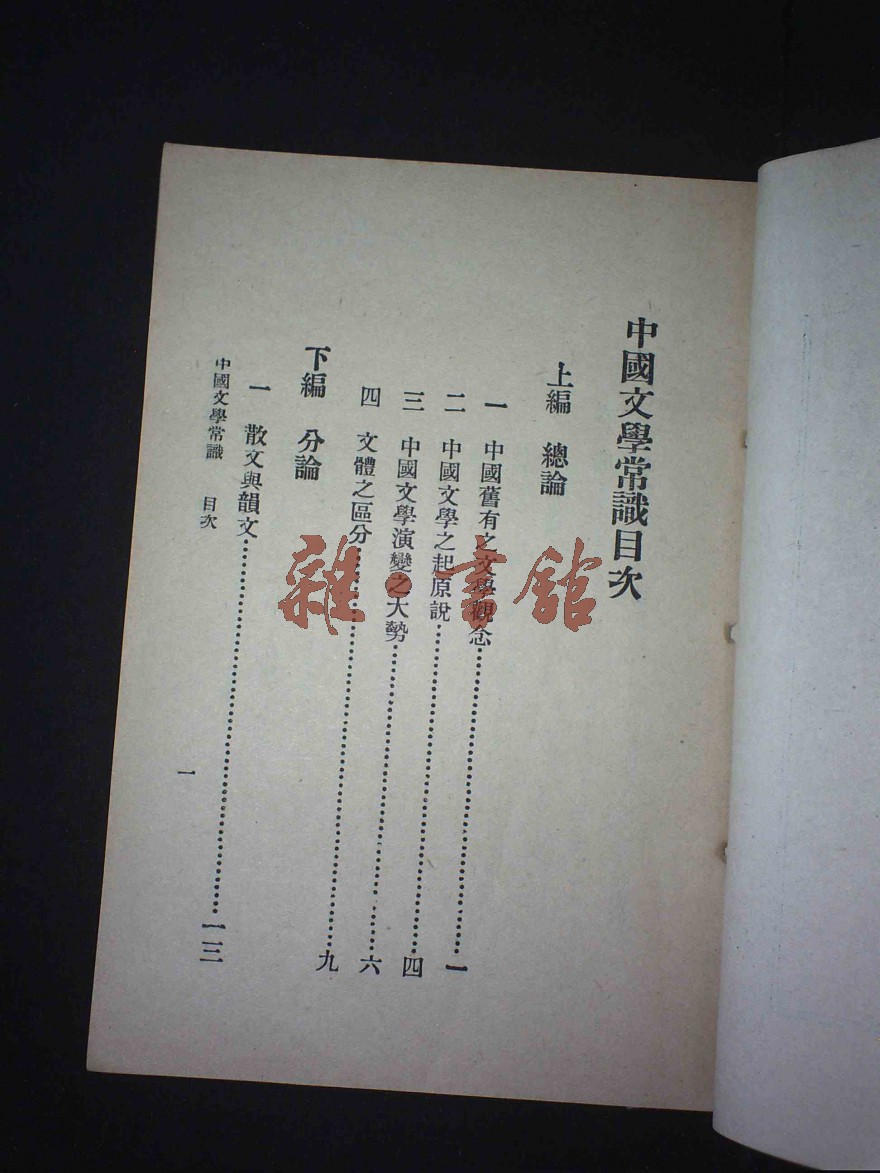 中國文學常識目次
上編 總論
一 中國舊有之文學觀念⋯⋯⋯⋯⋯⋯一
二 中國文學之起原說⋯⋯⋯⋯⋯⋯四
三 中國文學演變之大勢⋯⋯⋯⋯⋯⋯六
四 文體之區分⋯⋯⋯⋯⋯⋯九
下編 分論
一 散文與韻文⋯⋯⋯⋯⋯⋯一三
中國文學常識 目次
一
雜·書館